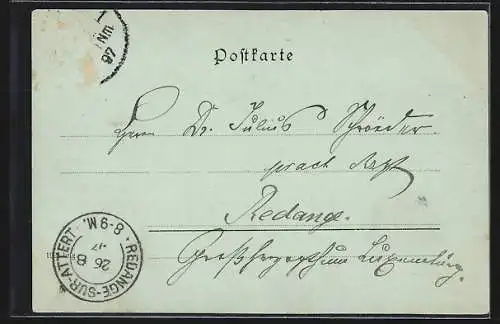 Nm
97
Postkarte
Herrn Dr. Julius Schröeder
pract Arzt
Redange.
Großherzogthum Luxemburg.
REDANGE-SUR-ATTERT * 8-9 M. *
26 8
97